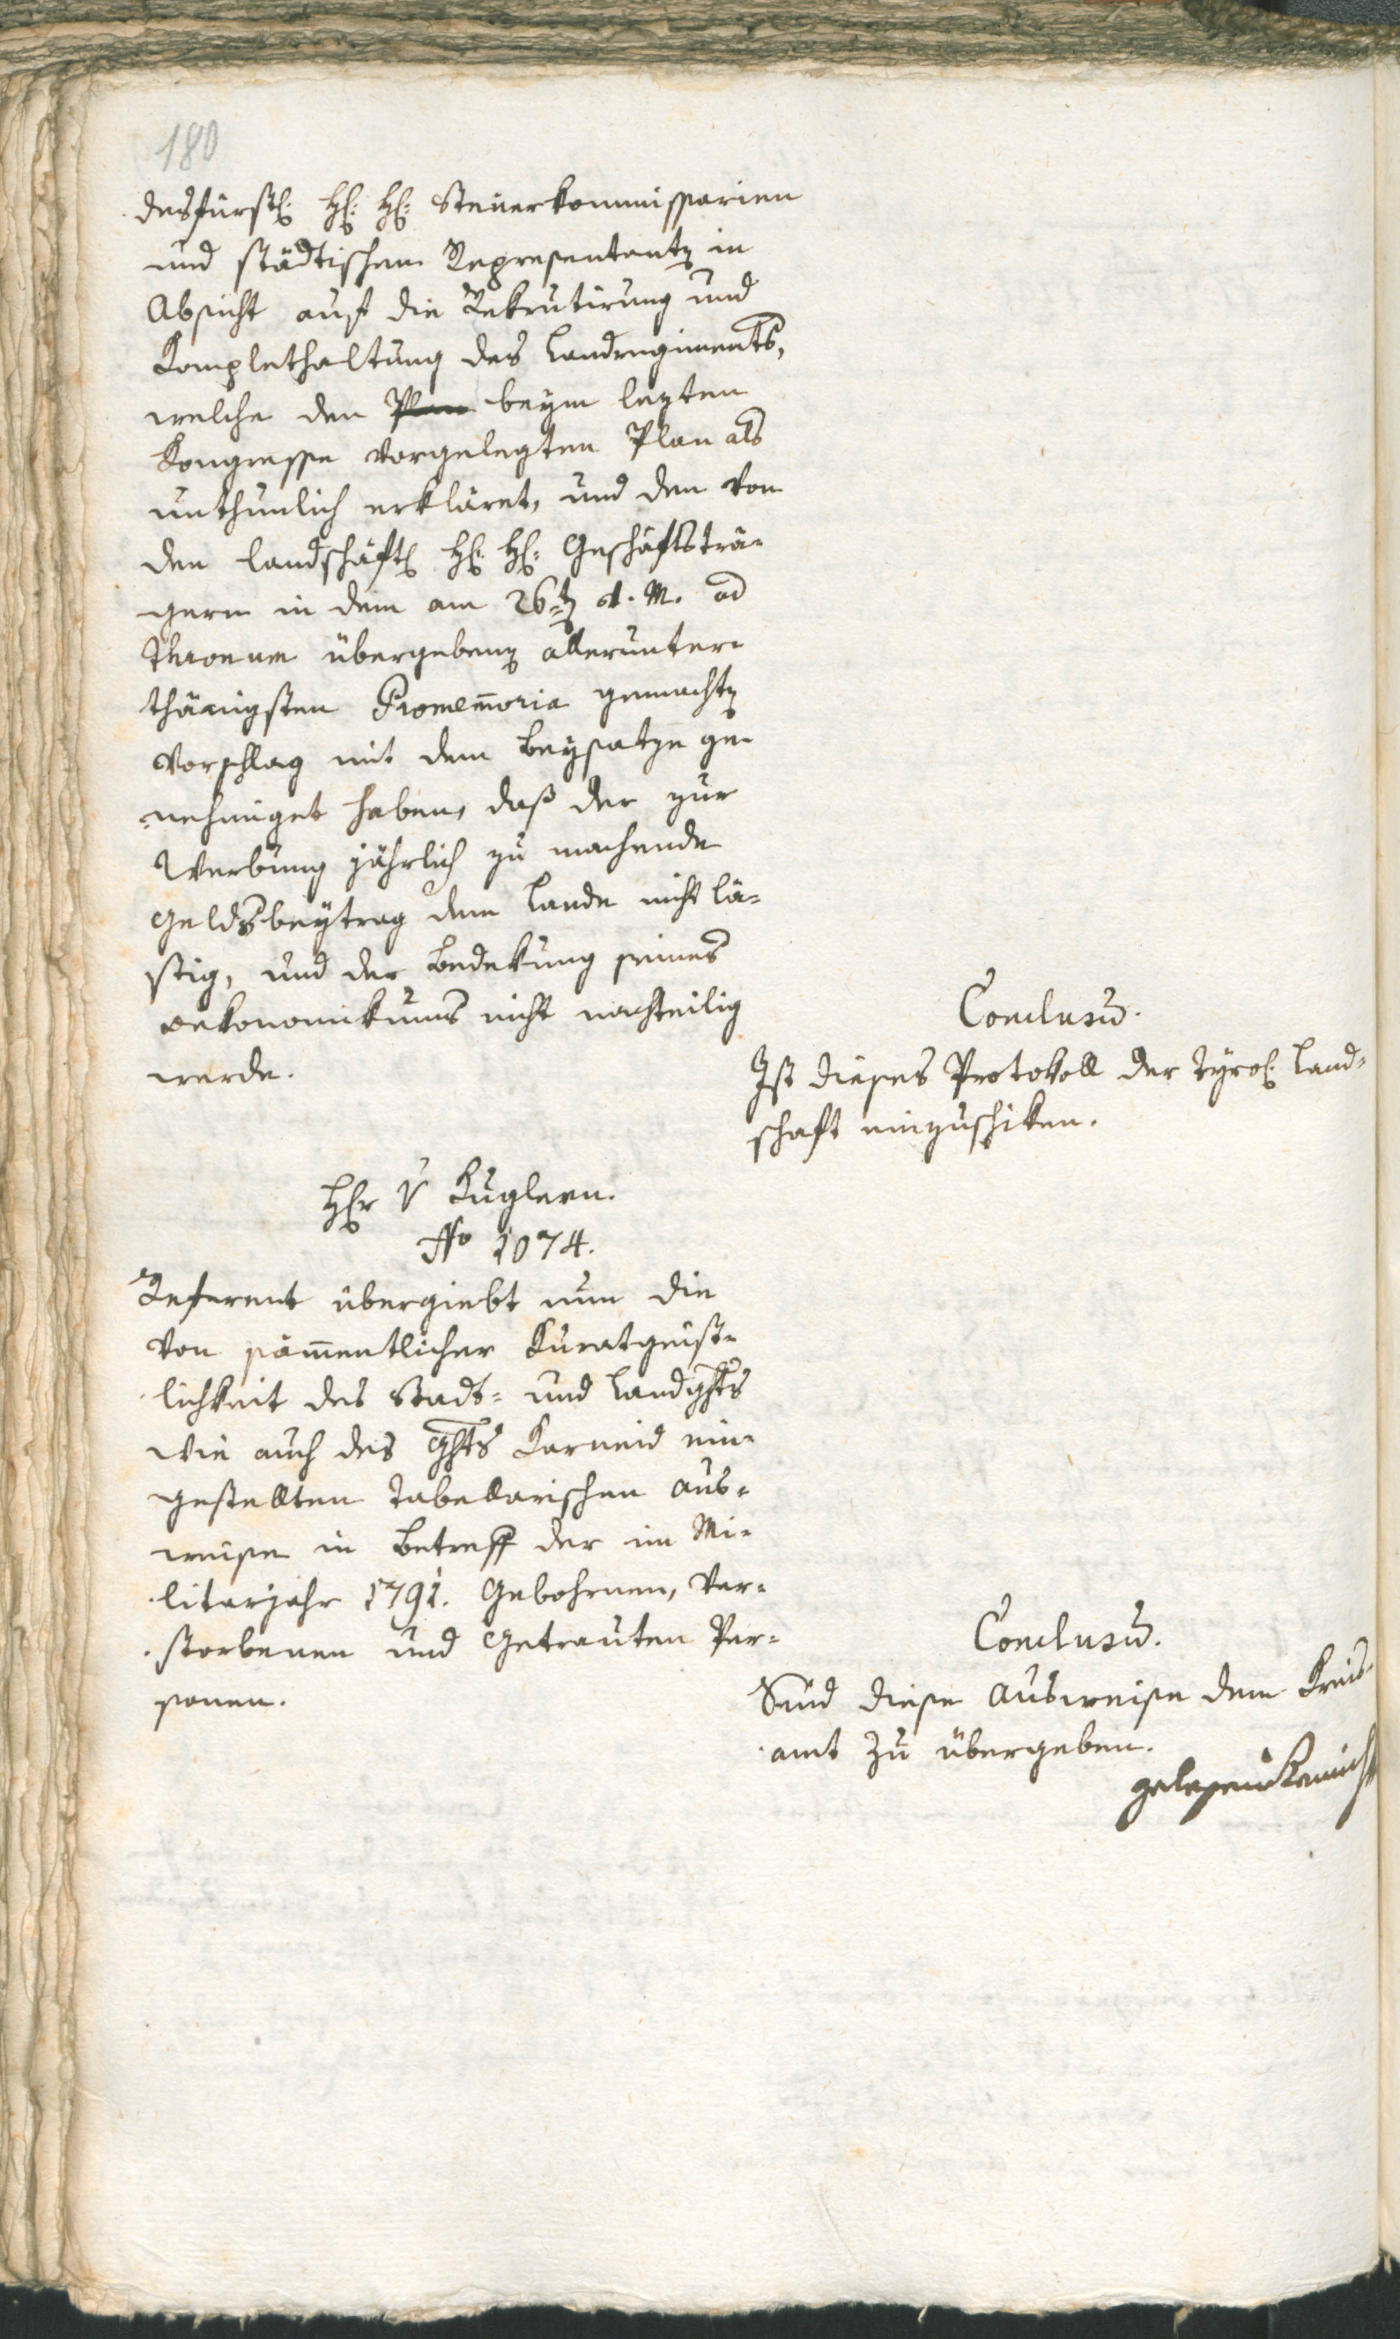 180
desfürstl: H: H: Steuerkommissarien
und städtischen Representantn in
Absicht auf die Rekrutirung und
Komplethaltung des Landregiments,
welche den Plan beym lezten
Kongresse vorgelegten Plan als
unthunlich erkläret, und den von
den landschäftl H: H: Geschäftsträ-
gern in dem am 26tn d. M. ad
Thronum übergebenen allerunter-
thänigsten Promemoria gemachtn
Vorschlag mit dem Beysatze ge-
nehmiget haben, daß der zur
Werbung jährlich zu machende
Geldsbeytrag dem Lande nicht lä-
stig, und der Bedekung seines
oekonomikums nicht nachteilig
werde.
Conclusū.
Ist dieses Protokoll der Tyrol: Land-
schaft einzuschiken.
Hr v Kuglern.
No 1074.
Referent übergiebt nun die
von sām̄entlicher Kuratgeist-
lichkeit des Stadt- und Landghts
wie auch des Ghts Karneid ein-
gestellten tabellarischen Aus-
weise in Betreff der im Mi-
litarjahr 1791. Gebohrnen, Ver-
storbenen und Getrauten Per-
sonen.
Conclusū.
Sind diese Ausweise dem Kreis-
amt zu übergeben.